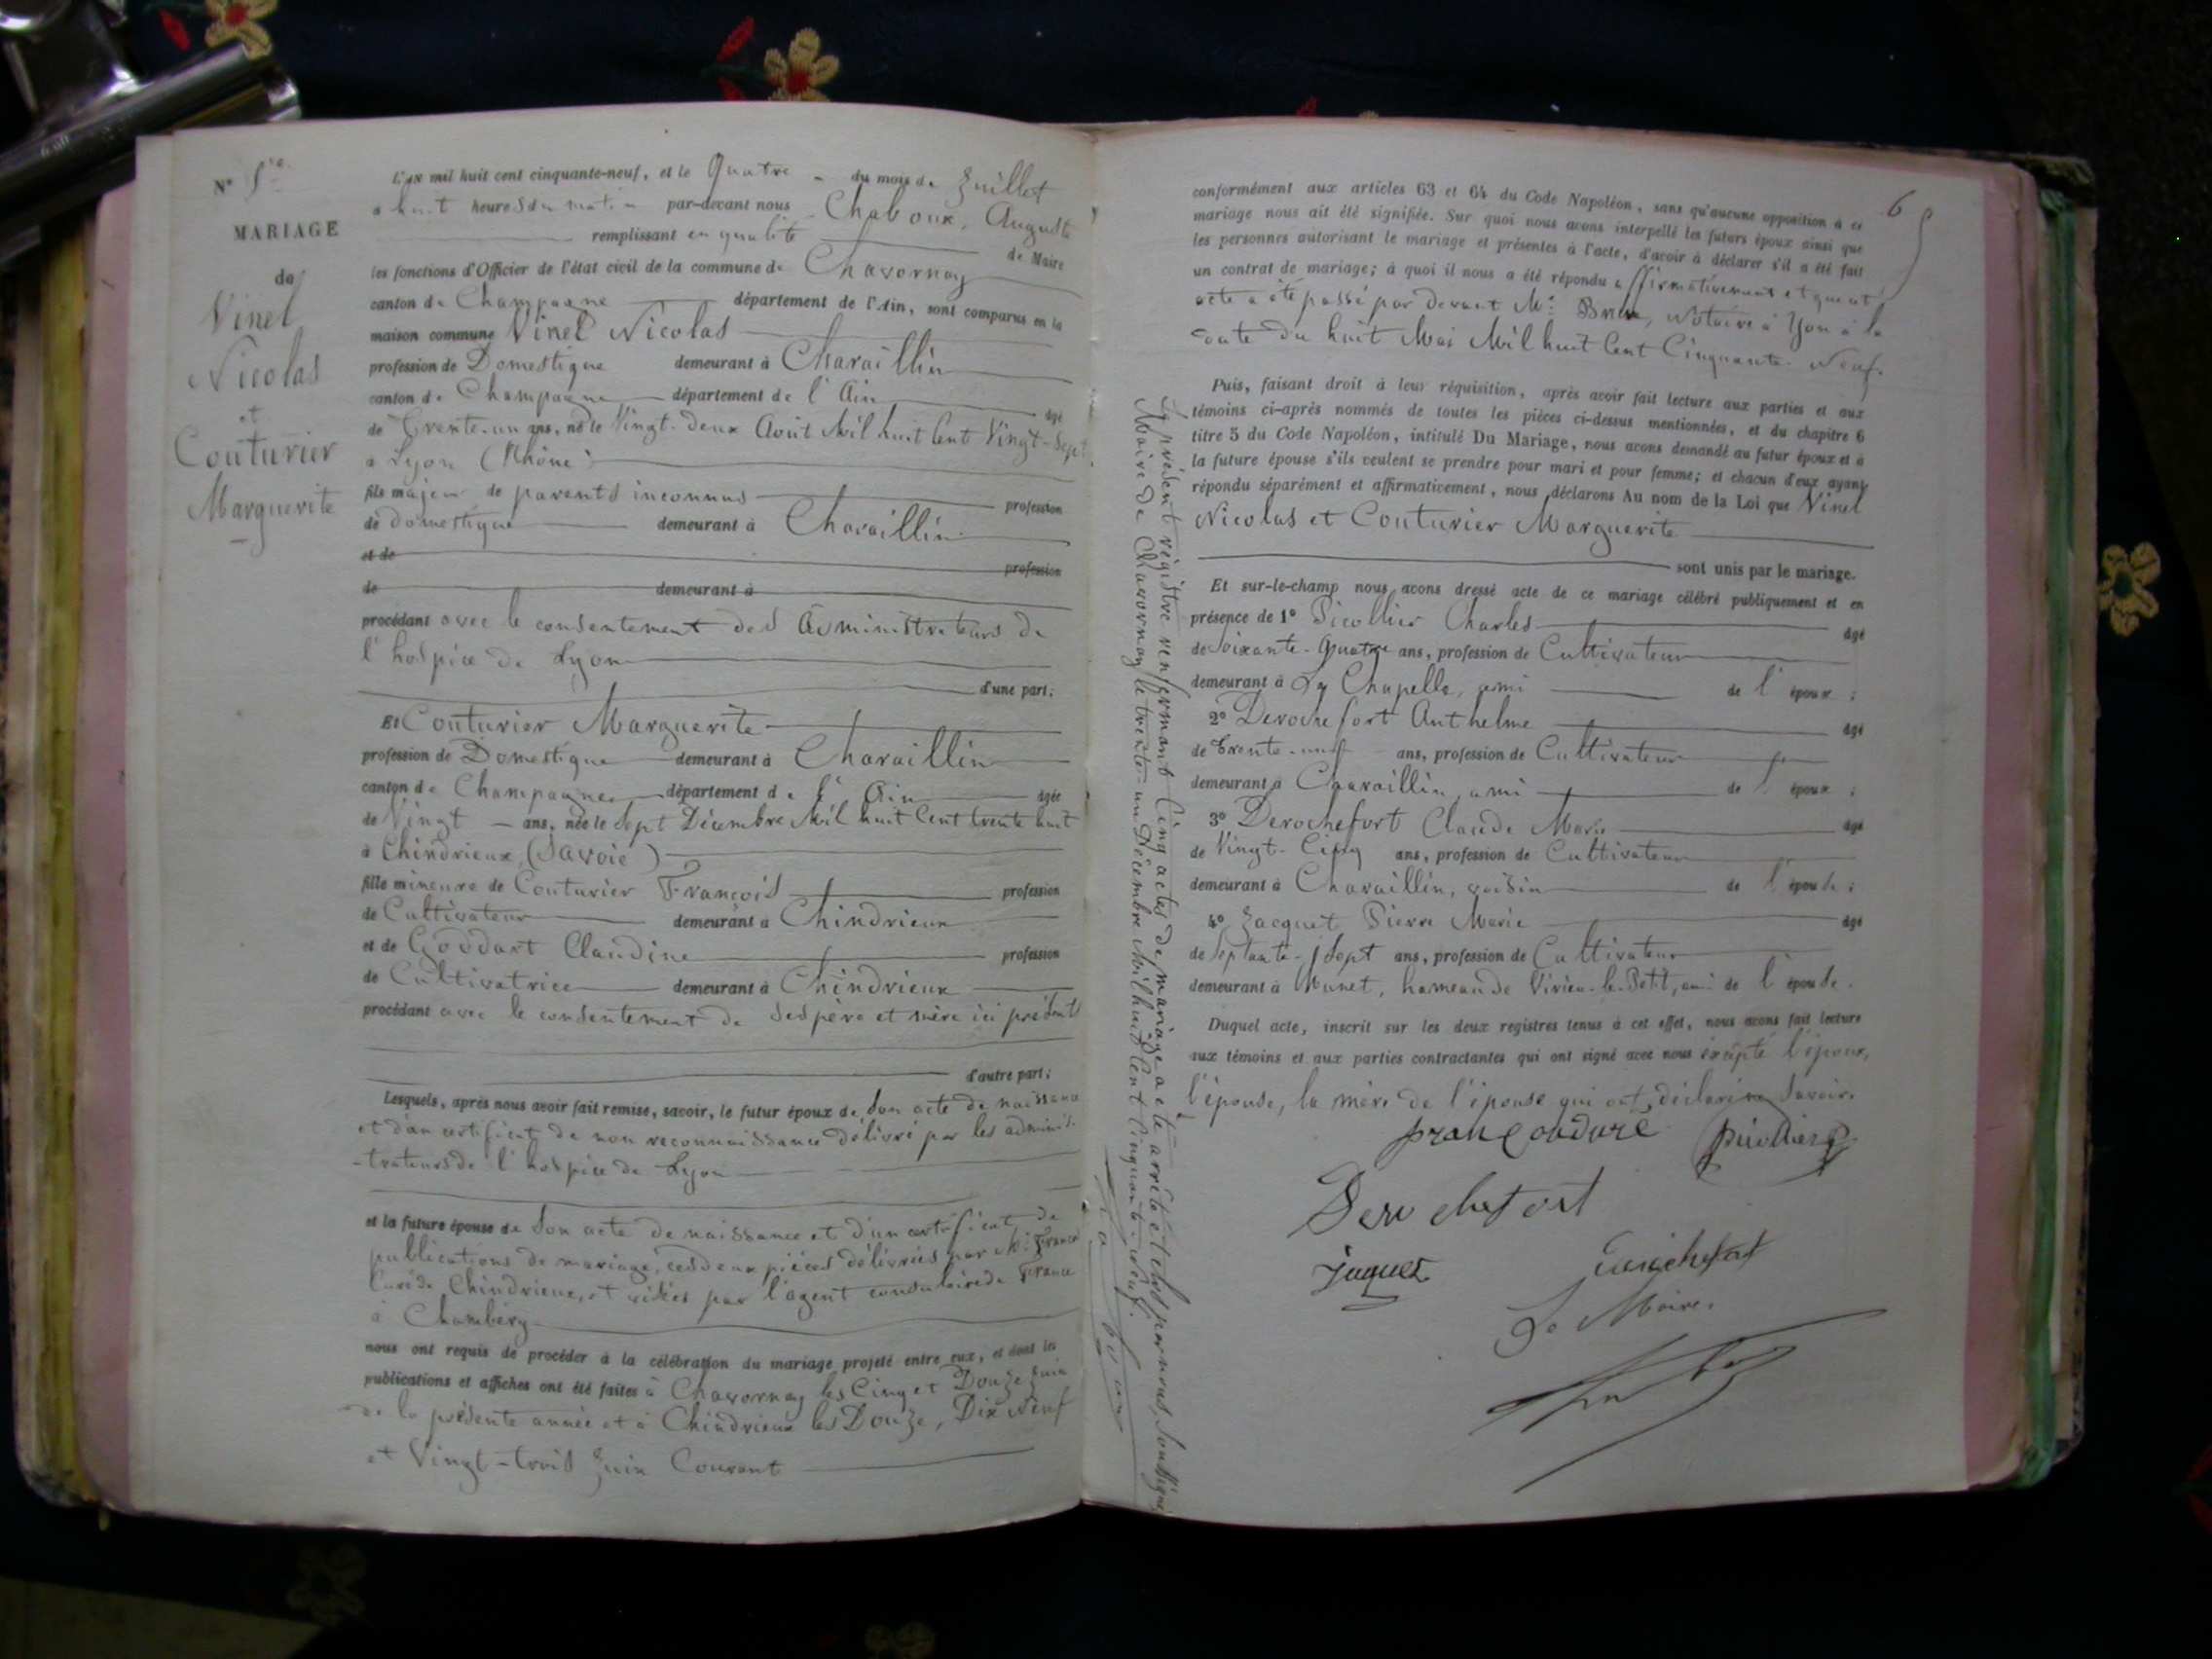 N° 5
MARIAGE
de
Vinel
Nicolas
et
Couturier
Marguerite
L'AN mil huit cent cinquante-neuf, et le Quatre du mois de Juillet
à huit heures du matin par-devant nous Chaboux, Auguste
remplissant en qualité de Maire
les fonctions d'Officier de l'état civil de la commune de Chavornay
canton de Champagne département de l'Ain, sont comparus en la
maison commune Vinel Nicolas
profession de Domestique demeurant à Charaillin
canton de Champagne département de l'Ain âgé
de Trente-un ans, né le Vingt-deux Août Mil huit Cent Vingt-Sept
à Lyon (Rhône)
fils majeur de parents inconnus profession
de domestique demeurant à Charaillin
et de profession
de demeurant à
procédant avec le consentement des Administrateurs de
l'hospice de Lyon
d'une part;
Et Couturier Marguerite
profession de Domestique demeurant à Charaillin
canton de Champagne département de l'Ain âgée
de Vingt ans, née le Sept Décembre Mil huit Cent trente huit
à Chindrieux, (Savoie)
fille mineure de Couturier François profession
de Cultivateur demeurant à Chindrieux
et de Goddart Claudine profession
de Cultivatrice demeurant à Chindrieux
procédant avec le consentement de ses père et mère ici présents
d'autre part;
Lesquels, après nous avoir fait remise, savoir, le futur époux de Son acte de naissance
et d'un certificat de non reconnaissance délivré par les adminis-
-trateurs de l'hospice de Lyon
et la future épouse de Son acte de naissance et d'un certificat de
publications de mariage, ces deux pièces délivrées par Mr France
Curé de Chindrieux, et visées par l'agent consulaire de France
à Chambéry
nous ont requis de procéder à la célébration du mariage projeté entre eux, et dont les
publications et affiches ont été faites à Chavornay les Cinq et Douze Juin
de la présente année et à Chindrieux les Douze, Dix Neuf
et Vingt-trois Juin Courant
6
conformément aux articles 63 et 64 du Code Napoléon, sans qu'aucune opposition à ce
mariage nous ait été signifiée. Sur quoi nous avons interpellé les futurs époux ainsi que
les personnes autorisant le mariage et présentes à l'acte, d'avoir à déclarer s'il a été fait
un contrat de mariage; à quoi il nous a été répondu affirmativement et que cet
acte a été passé par devant Me Notaire à Lyon à la
date du huit Mai Mil huit Cent Cinquante-Neuf.
Puis, faisant droit à leur réquisition, après avoir fait lecture aux parties et aux
témoins ci-après nommés de toutes les pièces ci-dessus mentionnées, et du chapitre 6
titre 5 du Code Napoléon, intitulé Du Mariage, nous avons demandé au futur époux et à
la future épouse s'ils veulent se prendre pour mari et pour femme; et chacun d'eux ayant
répondu séparément et affirmativement, nous déclarons Au nom de la Loi que Vinel
Nicolas et Couturier Marguerite
sont unis par le mariage.
Et sur-le-champ nous avons dressé acte de ce mariage célébré publiquement et en
présence de 1° Picollier Charles âgé
de Soixante-Quatre ans, profession de Cultivateur
demeurant à La Chapelle, ami de l'époux;
2° Derochefort Anthelme âgé
de Trente-neuf ans, profession de Cultivateur
demeurant à Charaillin, ami de l'époux;
3° Derochefort Claude Marie âgé
de Vingt-Cinq ans, profession de Cultivateur
demeurant à Charaillin, voisin de l'épouse;
4° Jacquet Pierre Marie âgé
de Septante-Sept ans, profession de Cultivateur
demeurant à Munet, hameau de Virieu-le-Petit, ami de l'épouse.
Duquel acte, inscrit sur les deux registres tenus à cet effet, nous avons fait lecture
aux témoins et aux parties contractantes qui ont signé avec nous excepté l'époux,
l'épouse, la mère de l'épouse qui ont déclaré ne savoir.
Picollier
Derochefort
Jaquet
Derochefort
Le Maire.
Le présent registre renfermant Cinq actes de mariage a été arrêté et clos par nous, soussigné
Maire de Chavornay le trente-un Décembre Mil huit Cent Cinquante-neuf.